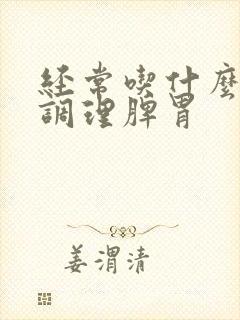 經常喫什麼
調理脾胃
姜渭清